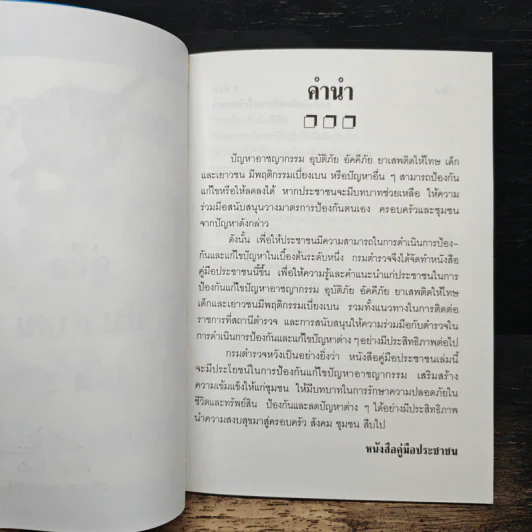 คำนำ
ปัญหาอาชญากรรม อุบัติภัย อัคคีภัย ยาเสพติดให้โทษ เด็ก
และเยาวชน มีพฤติกรรมเบี่ยงเบน หรือปัญหาอื่น ๆ สามารถป้องกัน
แก้ไขหรือให้ลดลงได้ หากประชาชนจะมีบทบาทช่วยเหลือ ให้ความ
ร่วมมือสนับสนุนวางมาตรการป้องกันตนเอง ครอบครัวและชุมชน
จากปัญหาดังกล่าว
ดังนั้น เพื่อให้ประชาชนมีความสามารถในการดำเนินการป้อง-
กันและแก้ไขปัญหาในเบื้องต้นระดับหนึ่ง กรมตำรวจจึงได้จัดทำหนังสือ
คู่มือประชาชนนี้ขึ้น เพื่อให้ความรู้และคำแนะนำแก่ประชาชนในการ
ป้องกันแก้ไขปัญหาอาชญากรรม อุบัติภัย อัคคีภัย ยาเสพติดให้โทษ
เด็กและเยาวชนมีพฤติกรรมเบี่ยงเบน รวมทั้งแนวทางในการติดต่อ
ราชการที่สถานีตำรวจ และการสนับสนุนให้ความร่วมมือกับตำรวจใน
การดำเนินการป้องกันและแก้ไขปัญหาต่าง ๆอย่างมีประสิทธิภาพต่อไป
กรมตำรวจหวังเป็นอย่างยิ่งว่า หนังสือคู่มือประชาชนเล่มนี้
จะมีประโยชน์ในการป้องกันแก้ไขปัญหาอาชญากรรม เสริมสร้าง
ความเข้มแข็งให้แก่ชุมชน ให้มีบทบาทในการรักษาความปลอดภัยใน
ชีวิตและทรัพย์สิน ป้องกันและลดปัญหาต่าง ๆ ได้อย่างมีประสิทธิภาพ
นำความสงบสุขมาสู่ครอบครัว สังคม ชุมชน สืบไป
หนังสือคู่มือประชาชน